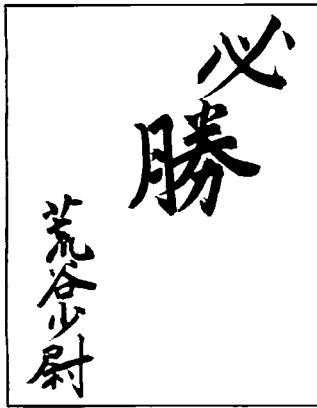 必勝
荒谷少尉